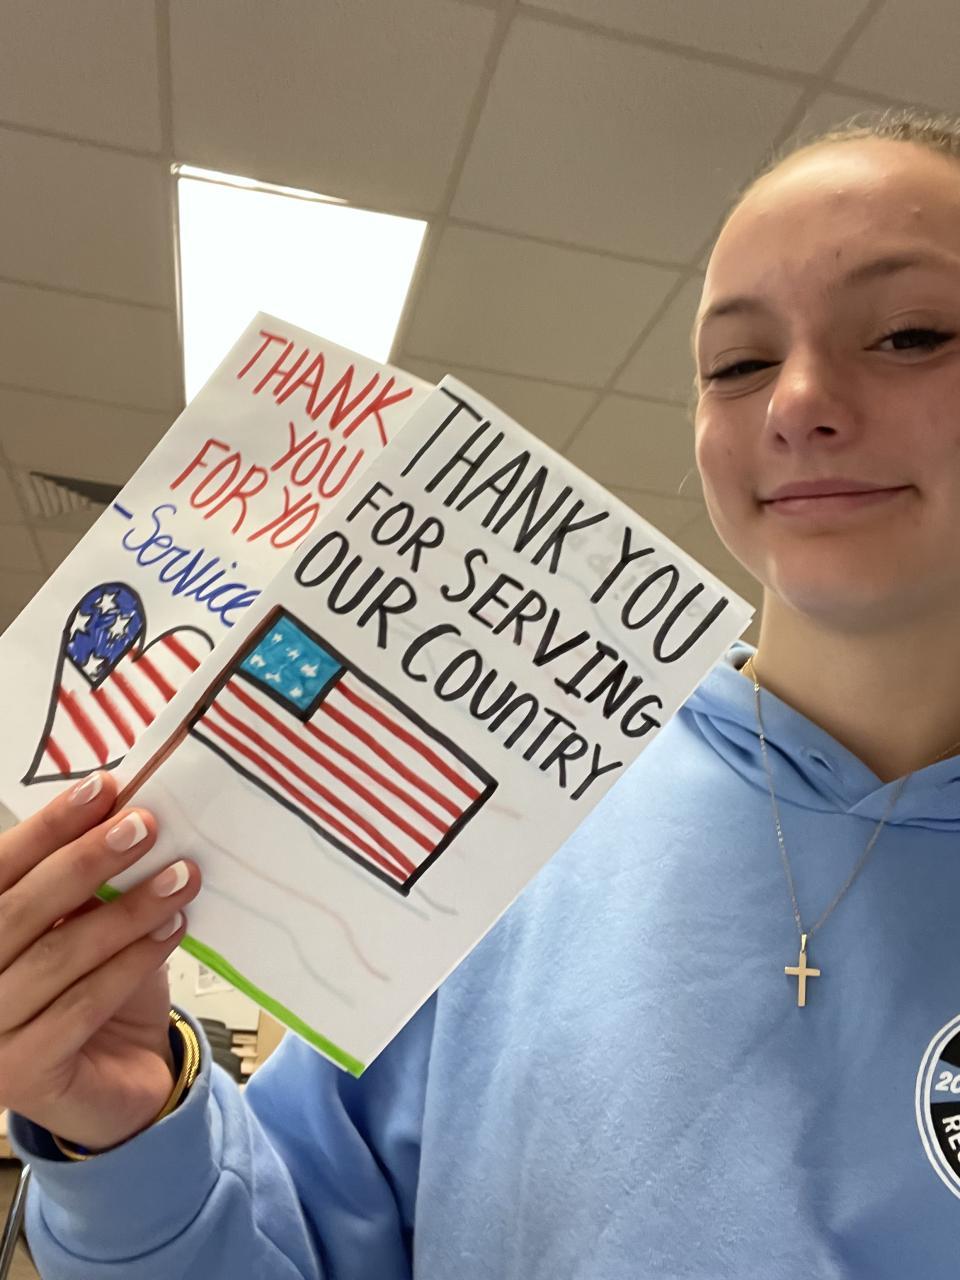 THANK
YOU
FOR YO
-Service
THANK YOU
FOR SERVING
OUR COUNTRY
20